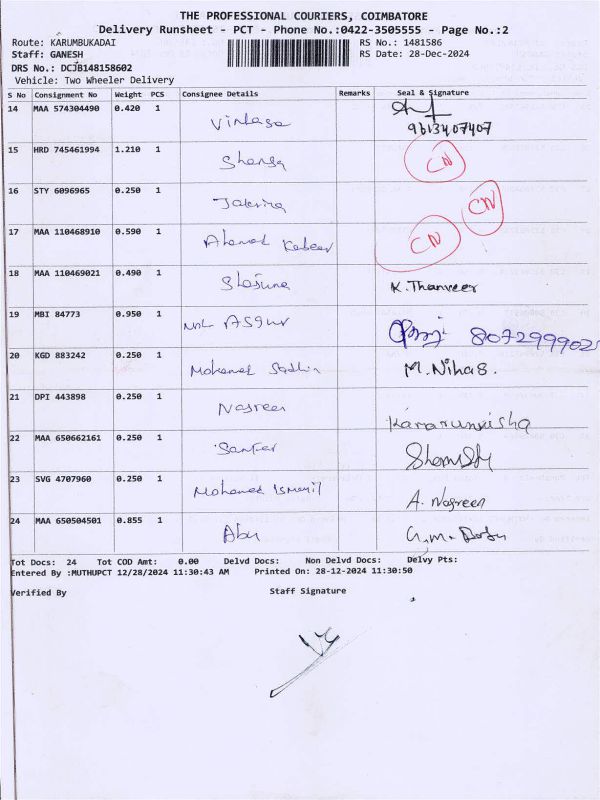 THE PROFESSIONAL COURIERS, COIMBATORE
Delivery Runsheet - PCT - Phone No.:0422-3505555 - Page No.:2
Route: KARUMBUKADAI RS No.: 1481586
Staff: GANESH RS Date: 28-Dec-2024
DRS No.: DCJB148158602
Vehicle: Two Wheeler Delivery
S No Consignment No Weight PCS Consignee Details Remarks Seal & Signature
14 MAA 574304490 0.420 1
9613407407
15 HRD 745461994 1.210 1 CN
16 STY 6096965 0.250 1 CN
17 MAA 110468910 0.590 1 Ahamed Kabeer CN
18 MAA 110469021 0.490 1 K. Thanveer
19 MBI 84773 0.950 1 8072999025
20 KGD 883242 0.250 1 Mohamed M. Nihas.
21 DPI 443898 0.250 1 Nasreen
22 MAA 650662161 0.250 1
23 SVG 4707960 0.250 1 Mohamed Ismail A. Nasreen
24 MAA 650504501 0.855 1 Abu
Tot Docs: 24 Tot COD Amt: 0.00 Delvd Docs: Non Delvd Docs: Delvy Pts:
Entered By :MUTHUPCT 12/28/2024 11:30:43 AM Printed On: 28-12-2024 11:30:50
Verified By Staff Signature